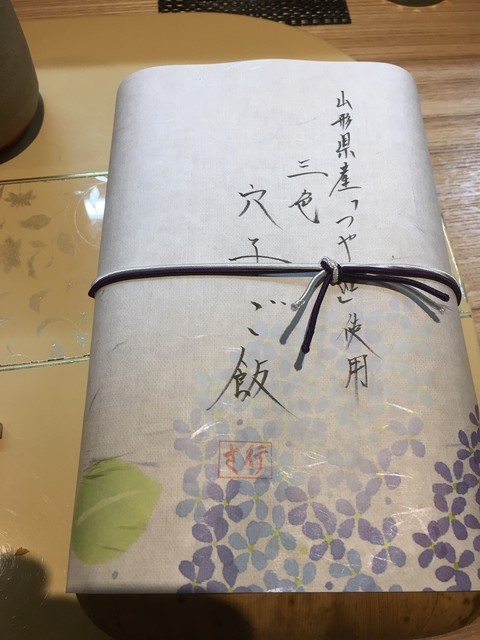 山形県産「つや姫」使用
三色
穴子ご飯